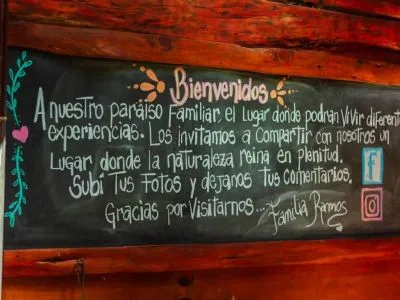 Bienvenidos
A nuestro paraiso Familiar, el Lugar donde podran ViVir diferent
experiencias. Los invitamos a Compartir con nosotros un
Lugar donde la naturaleza reina en plenitud.
Subí Tus Fotos y dejanos tus comentarios,
Gracias por Visitarnos... Familia Ramos
f